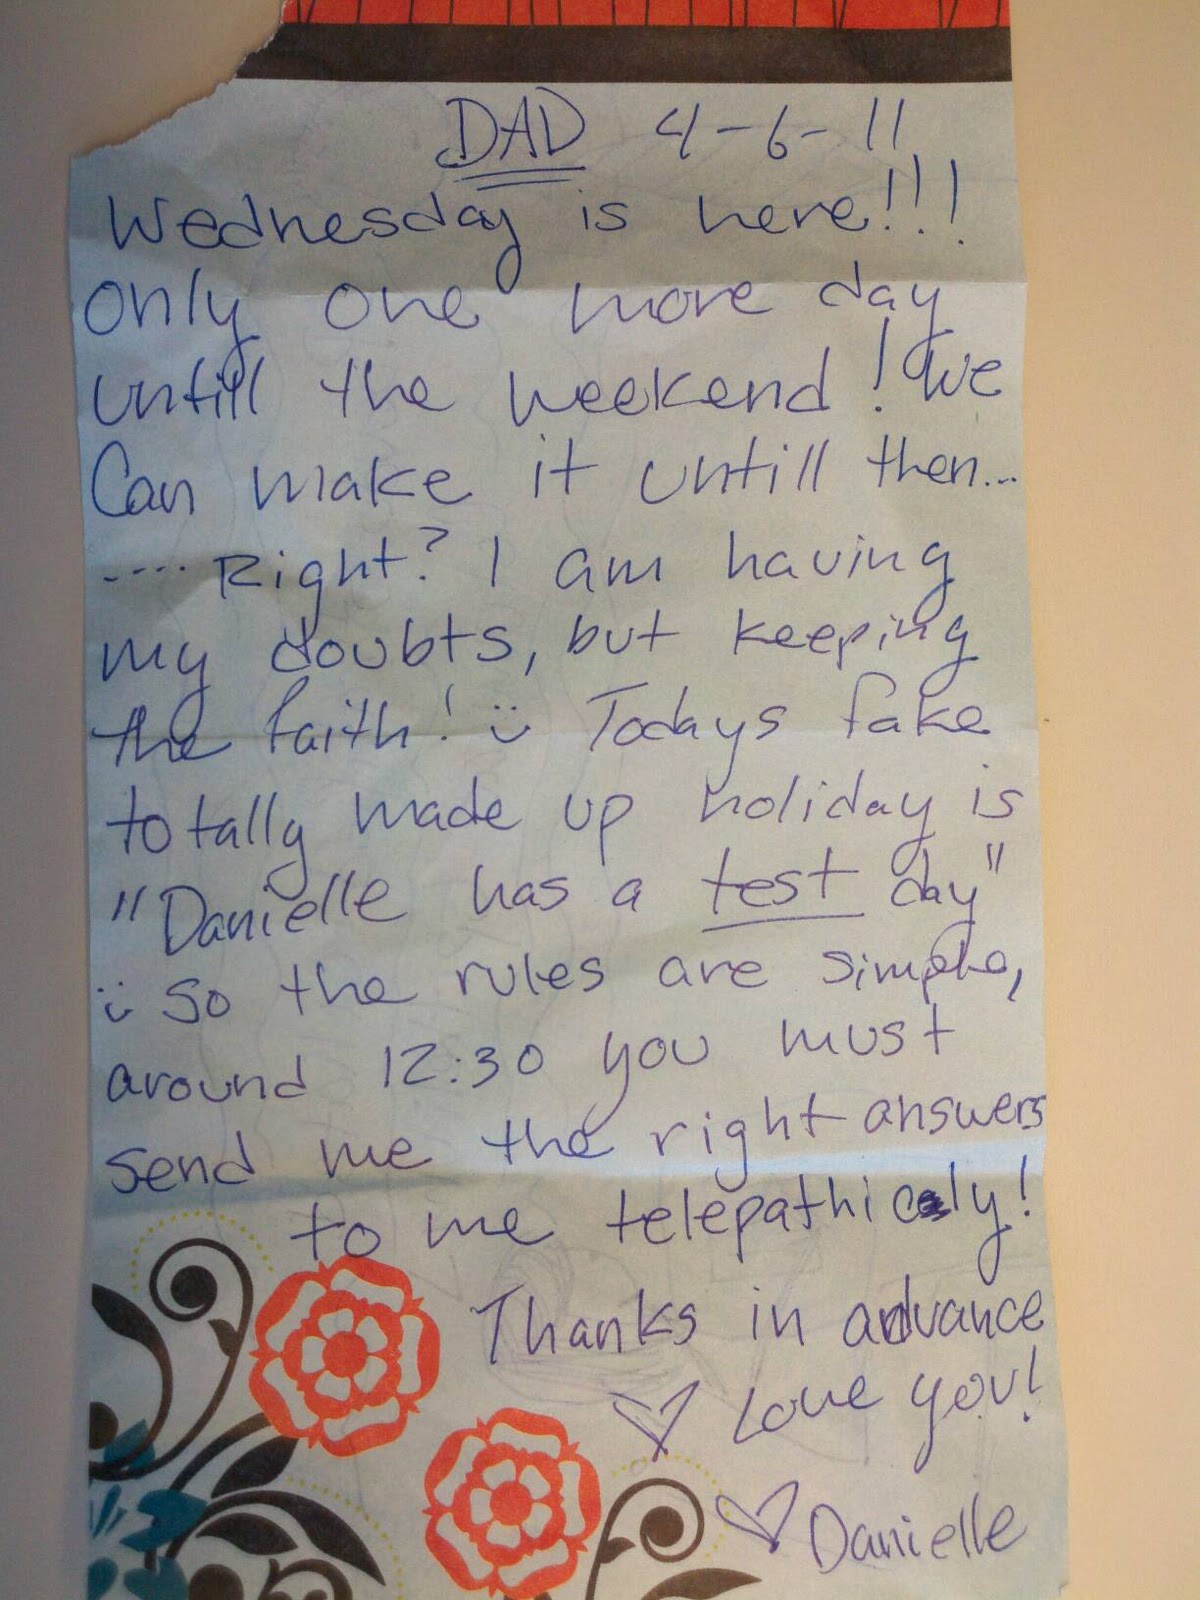 DAD 4-6-11
Wednesday is here!!!
only one more day
untill the weekend! We
Can make it untill then...
.... Right? I am having
my doubts, but keeping
the faith! :) Todays fake
totally made up holiday is
"Danielle has a test day"
:) So the rules are simple,
around 12:30 you must
send me the right answers
to me telepathicly!
Thanks in advance
♡ Love you!
♡ Danielle